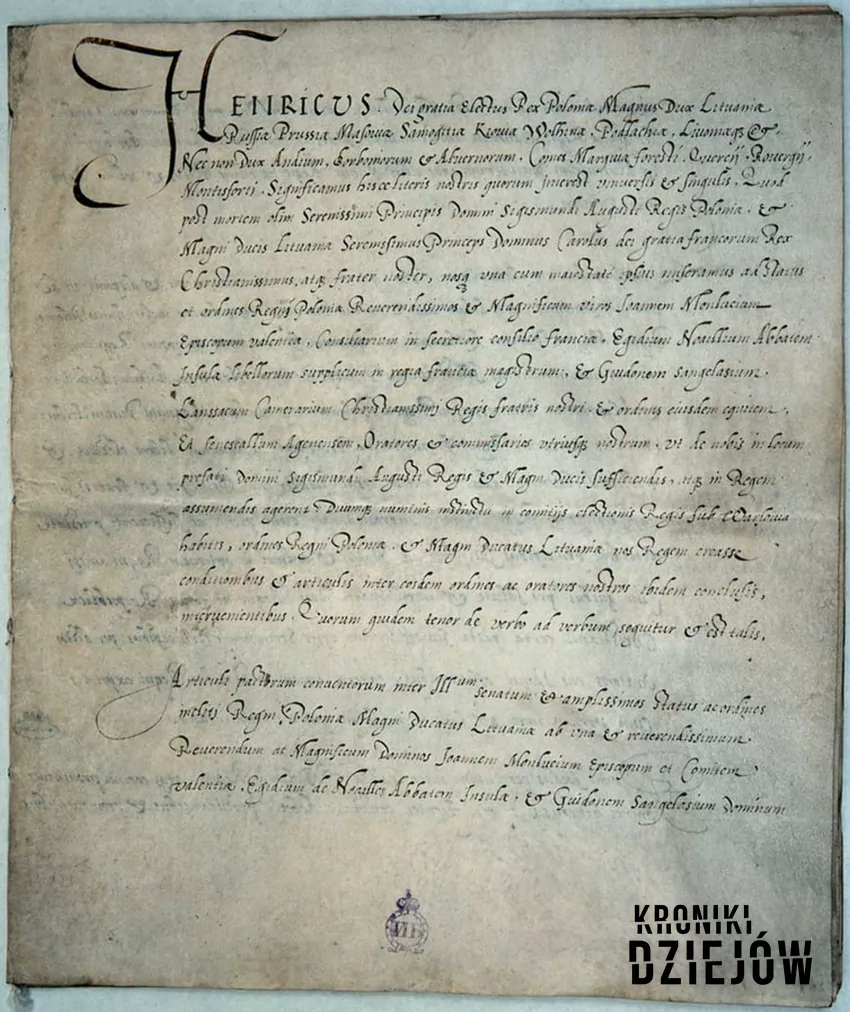 HENRICUS. Dei gratia Electus Rex Poloniæ Magnus Dux Lituaniæ
Russiæ Prussiæ Masoviæ Samogitiæ Kioviæ Wolhinæ, Podlachiæ, Livoniæq3 &
Nec non Dux Andium, Borboniorum & Alvernorum, Comes Marquiæ foresti, Quercij, Rovergij,
Montisforti, Significamus hisce literis nostris quorum interest vniversis & singulis, Quod
post mortem olim Serenissimi Principis Domini Sigismundi Augusti Regis Poloniæ, &
Magni Ducis Lituaniæ Serenissimus Princeps Dominus Carolus dei gratia francorum Rex
Christianissimus, atq3 frater noster, nosq3 vna cum maiestate ipsius miseramus ad status
et ordines Regni Poloniæ Reverendissimos & Magnificum viros Ioannem Monlucium
Episcopum valentiæ, Consiliarium in secretiore consilio franciæ, Egidium Noallium Abbatem
Insulæ libellorum supplicum in regia franciæ magistrum, & Guidonem Sangelasium
Lanssacum Camerarium Christianissimi Regis fratris nostri, & ordinis eiusdem equitem,
Et Senescallum Agenensem, Oratores & commissarios vtriusq3 nostrum, vt de nobis in locum
prefati Domini Sigismundi Augusti Regis & Magni Ducis sufficiendis, atq3 in Regem
assumendis agerent, Divinoq3 numinis instinctu in comitijs electionis Regis sub Warsovia
habitis, ordines Regni Poloniæ, & Magni Ducatus Lituaniæ nos Regem creasse
conditionibus & articulis inter eosdem ordines ac oratores nostros ibidem conclusis,
intervenientibus. Quorum quidem tenor de verbo ad verbum sequitur & est talis.
Articuli pactorum conventorum inter Illum senatum & amplissimos status ac ordines
inclitj Regni Poloniæ Magni Ducatus Lituaniæ ab vna & reverendissimum
Reverendum ac Magnificum Dominos Ioannem Monlucium Episcopum et Comitem
valentiæ, Egidium de Noailles Abbatem Insulæ, & Guidonem Sangelasium Dominum
KRONIKI
DZIEJÓW